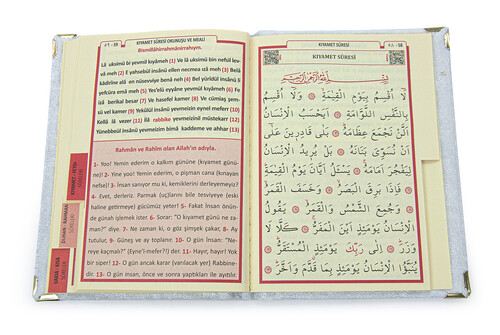 KIYAMET SÛRESİ OKUNUŞU VE MEALİ
Bismillâhirrahmânirrahıym.
Lâ uksimü bi yevmil kıyâmeh (1) Ve lâ uksimü bin nefsil lev-
vâ meh (2) E yahsebül insânü ellen necmea ızâ meh (3) Belâ
kâdiriıne alâ en nüsevviye benâ neh (4) Bel yüriıdül insânü li
yefcüra emâ meh (5) Yes'elü eyyâne yevmül kıyâmeh (6) Fe
izâ berikal besar (7) Ve hasefel kamer (8) Ve cümiaş şem-
sü vel kamer (9) Yekûlül insânü yevmeizin eynel meferr (10)
Kellâ lâ vezer (11) İlâ rabbike yevmeizinil müstekarr (12)
Yünebbeül insânü yevmeizin bimâ kaddeme ve ahhar (13)
Rahmân ve Rahîm olan Allah'ın adıyla.
1- Yoo! Yemin ederim o kalkım gününe (kıyamet günü-
ne)! 2- yine yoo! Yemin ederim, o pişman cana (kınayan
nefse)! 3- İnsan sanıyor mu ki, kemiklerini derleyemeyiz?
4- Evet, derleriz. Parmak (uç)larını bile tesviyeye (eski
haline getirmeye) gücümüz yeter! 5- Fakat İnsan önün-
de günah işlemek ister. 6- Sorar: "O kıyamet günü ne za-
man?" 7- Ne zaman ki, o göz şimşek çakar, 8- Ay
tutulur, 9- Güneş ve Ay toplanır. 10- O gün İnsan: "Ne-
reye kaçmalı?" (Eyne'l-mefer?!) der. 11- Hayır, hayır! Yok
bir siper! 12- O gün ancak karar (varılacak yer) Rabbine-
dir. 13- O gün insan, önce ve sonra yaptıkları ile ayıltılır.
KIYAMET SÛRESİ
KIYAMET SÛRESİ
بِسْمِ اللّٰهِ الرَّحْمٰنِ الرَّحِيمِ
لَٓا اُقْسِمُ بِيَوْمِ الْقِيٰمَةِۙ وَلَٓا اُقْسِمُ
بِالنَّفْسِ اللَّوَّامَةِ اَيَحْسَبُ الْاِنْسَانُ
اَلَّنْ نَجْمَعَ عِظَامَهُۜ بَلٰى قَادِرِينَ عَلٰٓى
اَنْ نُسَوِّيَ بَنَانَهُ بَلْ يُرِيدُ الْاِنْسَانُ
لِيَفْجُرَ اَمَامَهُۚ يَسْـَٔلُ اَيَّانَ يَوْمُ الْقِيٰمَةِۜ
فَاِذَا بَرِقَ الْبَصَرُۙ وَخَسَفَ الْقَمَرُۙ
وَجُمِعَ الشَّمْسُ وَالْقَمَرُۙ يَقُولُ
الْاِنْسَانُ يَوْمَئِذٍ اَيْنَ الْمَفَرُّۚ كَلَّا لَا
وَزَرَۜ اِلٰى رَبِّكَ يَوْمَئِذٍ الْمُسْتَقَرُّۜ
يُنَبَّؤُا الْاِنْسَانُ يَوْمَئِذٍ بِمَا قَدَّمَ وَاَخَّرَۜ